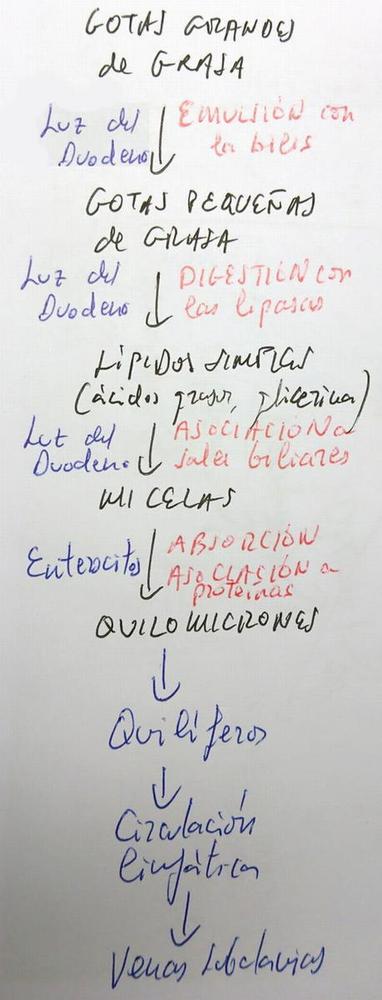 GOTAS GRANDES
de GRASA
Luz del
Duodeno
EMULSIÓN con
la bilis
GOTAS PEQUEÑAS
de GRASA
Luz del
Duodeno
DIGESTIÓN con
las lipasas
LÍPIDOS SIMPLES
(ácidos grasos, glicerina)
Luz del
Duodeno
ASOCIACIÓN a
sales biliares
MICELAS
Enterocitos
ABSORCIÓN
ASOCIASIÓN a
proteínas
QUILOMICRONES
Quilíferos
Circulación
linfática
Venas subclavias